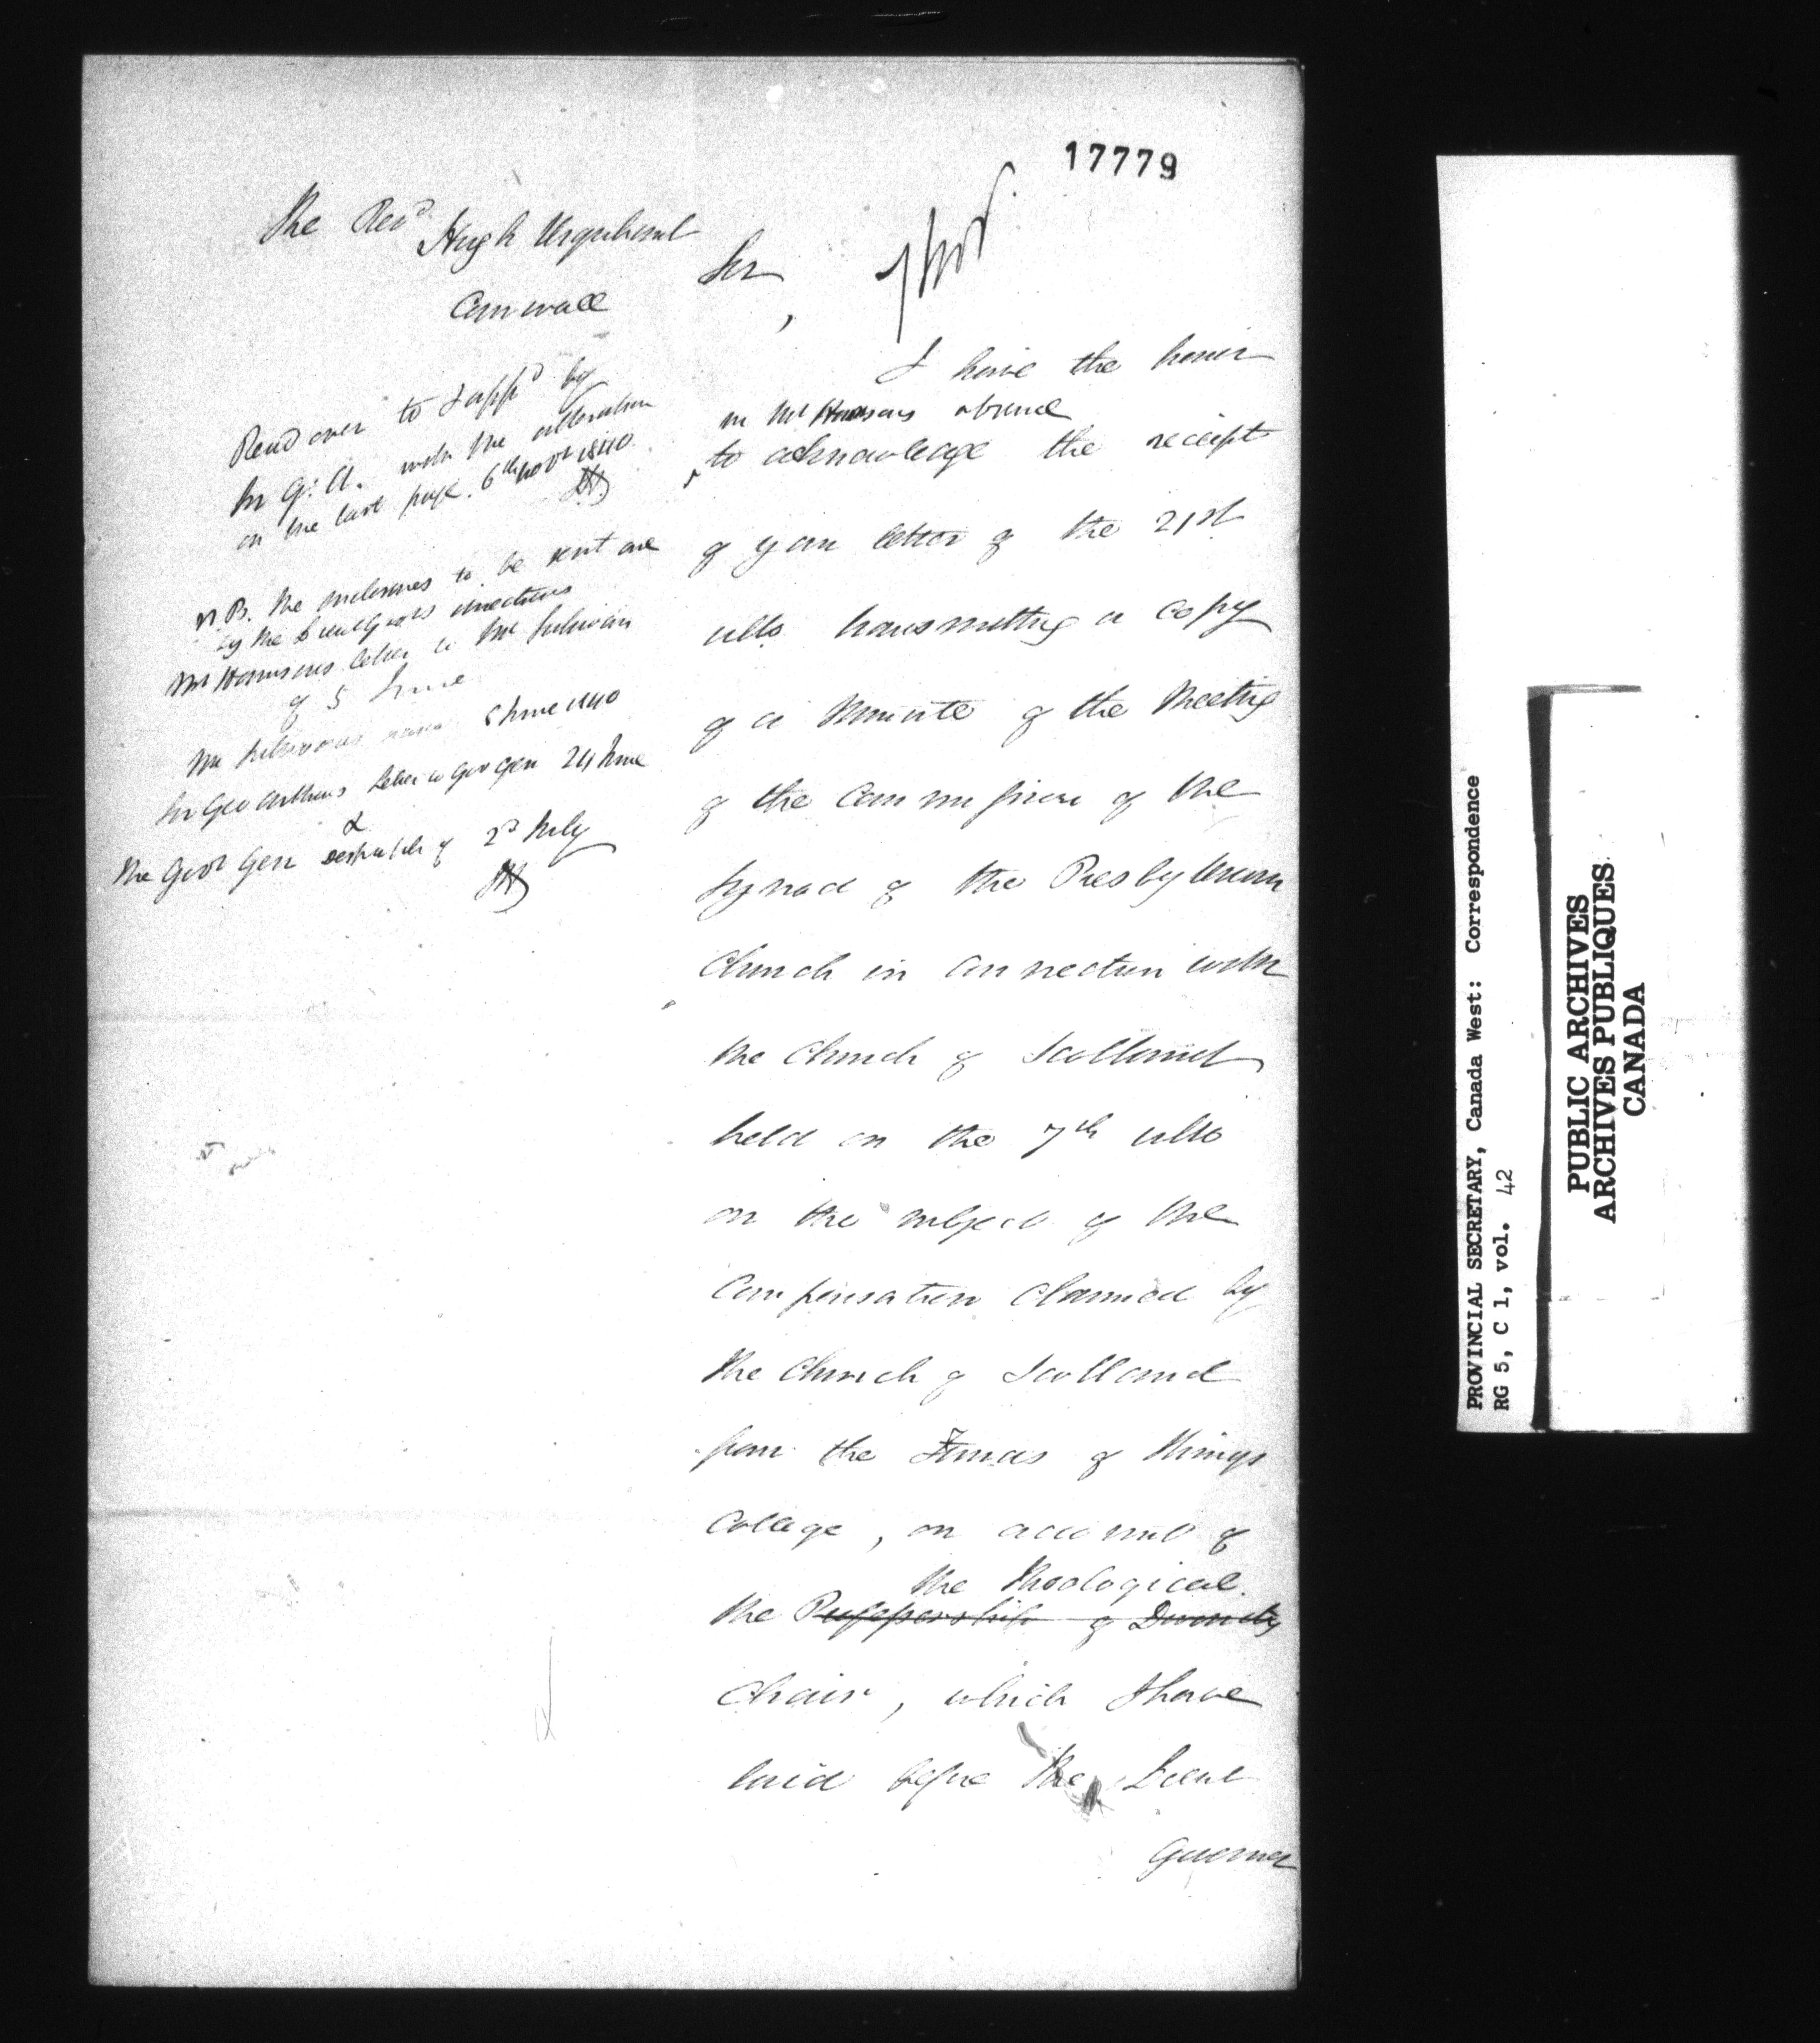 17779
The Revd Hugh Urquhart
Cornwall
Read over to & appd by
Sir G: A. with the alteration
on the last page. 6th Novr 1840
N.B. The enclosures to be sent are
by the Lieut Govrs directions
Mr Harrisons letter to Mr Sullivan
of 5 June
Mr Sullivans June 1840
Sir Geo Arthurs letter to Gov Gen 24 June
&
The Govr Gen despatch of 2d July
Sir,
I have the honor
in Mr Harrisons absence
to acknowledge the receipt
of your letter of the 21st
ulto transmitting a copy
of a Minute of the Meeting
of the Commission of the
Synod of the Presbyterian
Church in connection with
the Church of Scotland
held on the 7th ulto
on the subject of the
Compensation claimed by
the Church of Scotland
from the Funds of Kings
College, on account of
the Theological
the Professorship of Divinity
Chair, which I have
laid before the Lieut
Governor
PROVINCIAL SECRETARY, Canada West: Correspondence
RG 5, C 1, vol. 42
PUBLIC ARCHIVES
ARCHIVES PUBLIQUES
CANADA